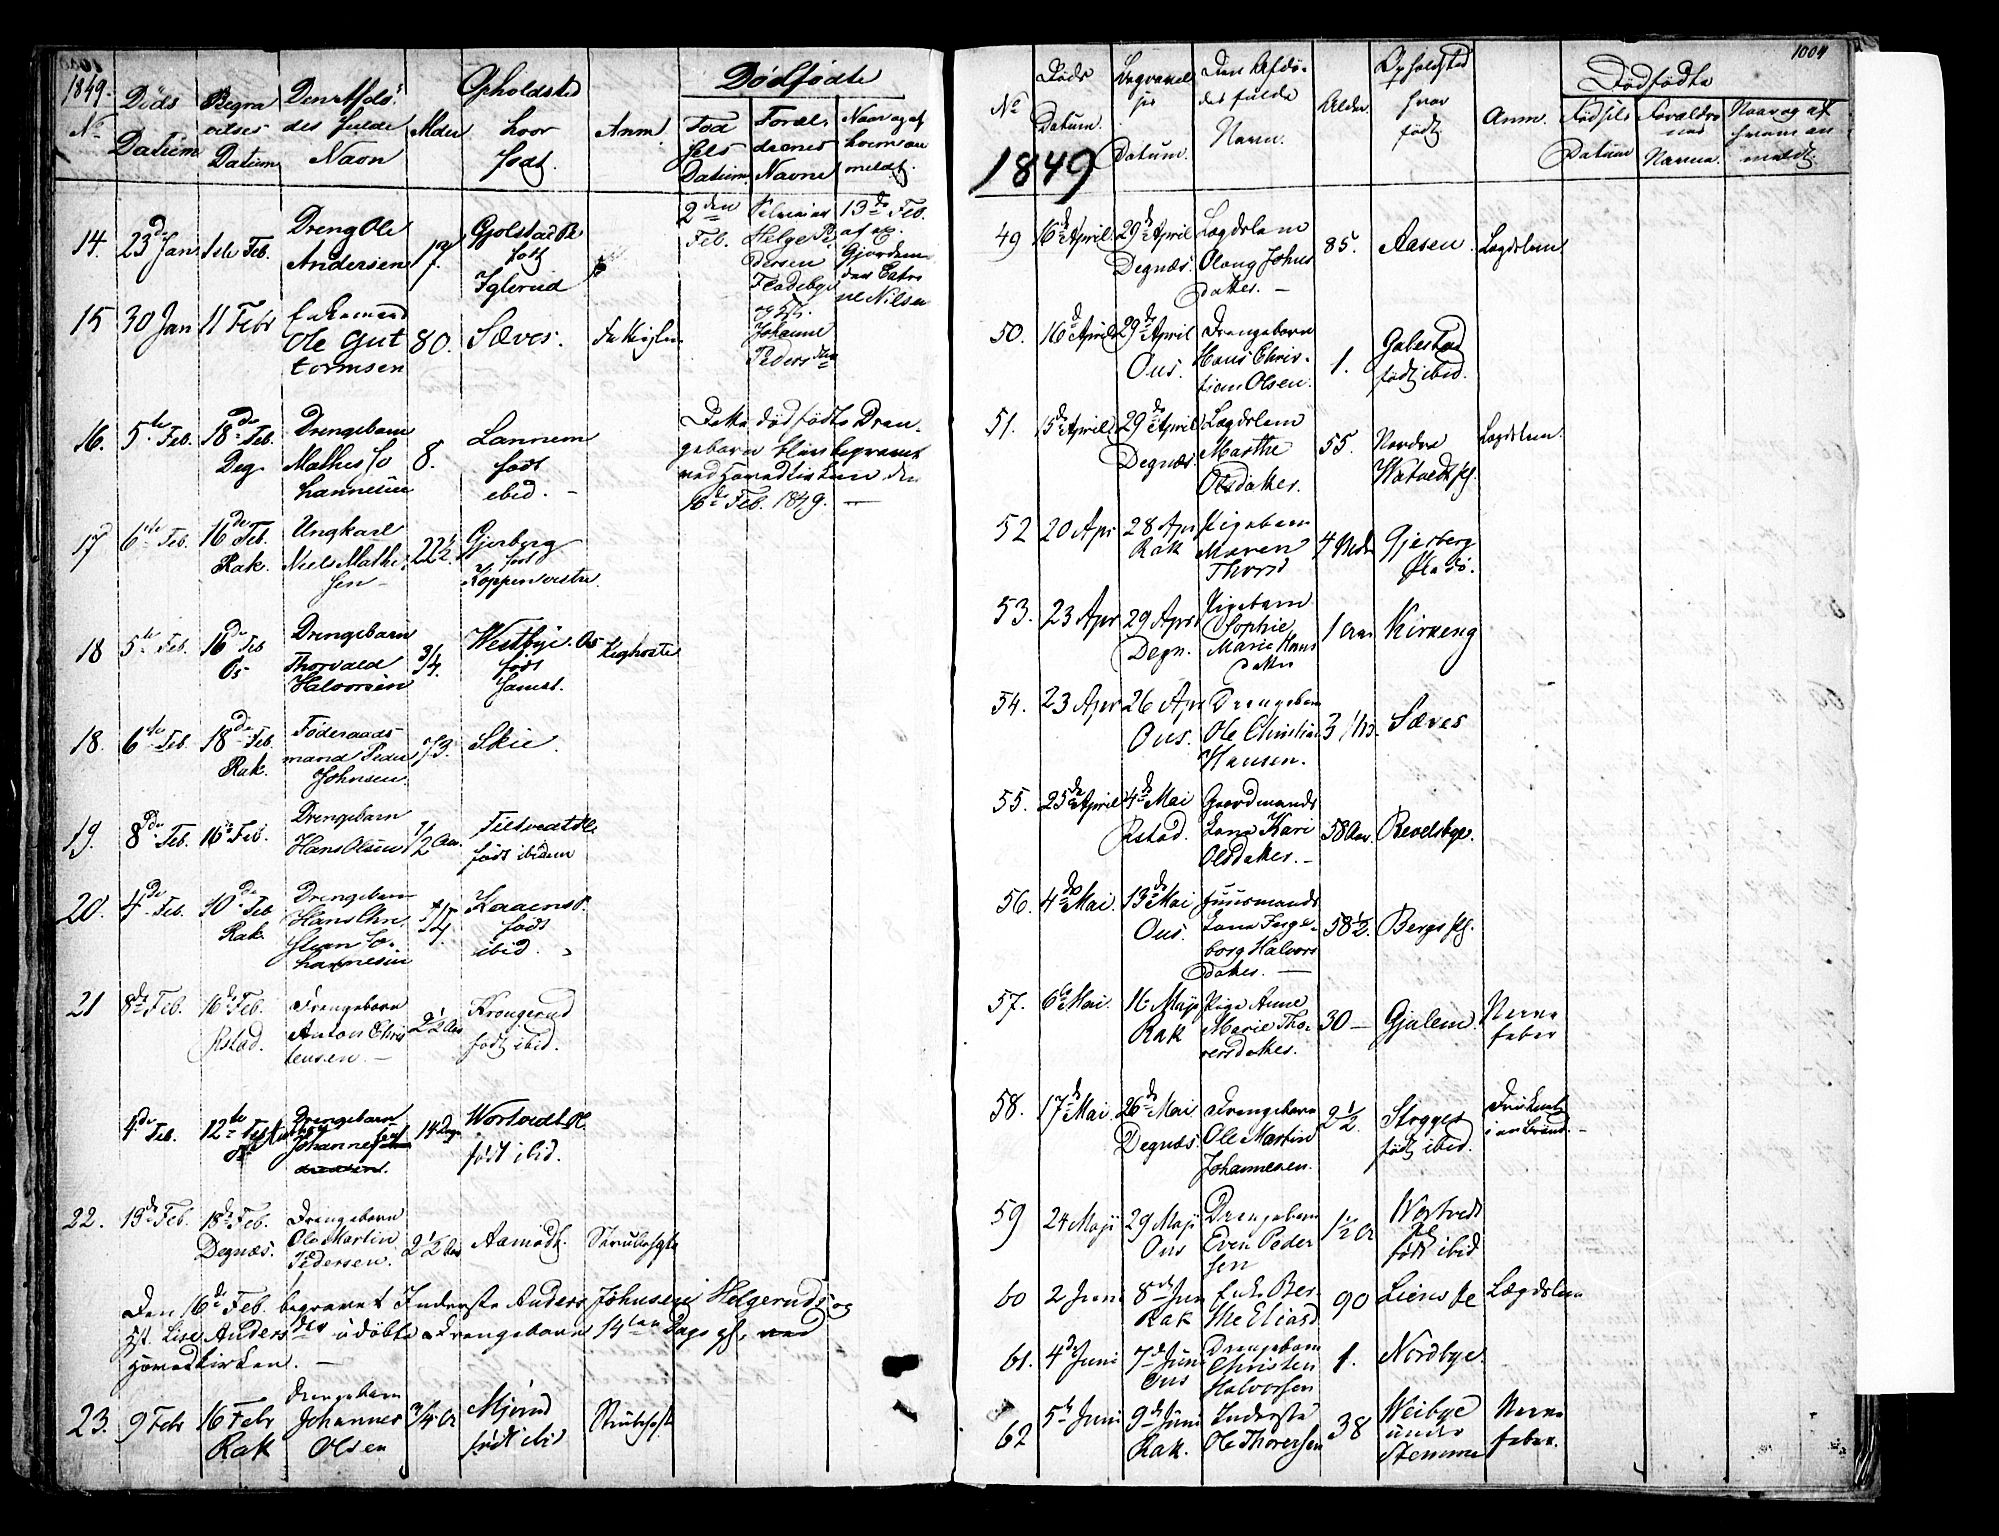 1849.
No
Döds
Datum
Begra
velses
Datum
Den Afdö
des fulde
Navn
Alder
Opholdsted
hvor
født.
Anm.
Dödfödte
Föd
sels
Datum
Foræl-
drenes
Navne
Naar og af
hvem an
meldt.
14. 23de Jan 1ste Feb.
Dreng Ole
Andersen
17.
Gjolstad
født
Iglerud
2den
Feb.
Helge Pe
dersen
Fladebye
og
Johanne
Peders
13de Feb.
af
Gjordem
Nilsen
15 30 Jan 11 Febr
Ole Gut
tormsen
80.
Sæves.
16. 5te Feb. 18de Feb.
Deg
Drengebarn
Mathis Jo
hannesen
8.
Lannem
født
ibid. -
Dette dödfödte Dren-
gebarn blev begravet
ved Hovedkirken den
16de Feb. 1849. -
17 6te Feb. 16de Feb.
Rak.
Ungkarl
Niels Mathi
sen -
22½.
Gjerberg
født
Koppervestre.
18 5te Feb. 16de Feb
Os
Drengebarn
Thorvald
Halvorsen
3/4.
Westbye. Os
født
samst.
Kighoste
18. 6te Feb. 18de Feb.
Rak.
Föderaads
mand Peder
Johnsen.
73.
Skie.
19. 8de Feb. 16de Feb.
Drengebarn
Hans Olsen
1/2 Aar.
født ibidem
20. 4de Feb. 10de Feb
Rak.
Drengebarn
Hans Chri
stian Jo-
hannesen
født
ibid.
21 8de Feb. 16de Feb.
Rstad.
Drengebarn
Anton Chris
tensen. -
2½ Aar
Krongerud
født ibid.
4de Feb. 12te Feb
Drengebarn
Johannes
14 Dage
Wortvedt
født ibid.
22. 15de Feb. 18de Feb.
Degnæs.
Drengebarn
Ole Martin
Pedersen.
2½ Aar
Aamodt.
Strubesyge
Den 16de Feb. begravet Inderste Anders Johnsen Helgeruds og
Lise Anders udöbte Drengebarn 14ten Dage gl. ved
Hovedkirken. -
23. 9 Febr 16 Febr
Rak
Drengebarn
Johannes
Olsen
3/4 Ar
Mjörud
født ibid
Strubesyge
1004
No
1849
Döds
Datum.
Begravel
ses
Datum.
Den Afdö-
des fulde
Navn.
Alder.
Opholdsted
hvor
født.
Anm.
Dödfödte
Födsels
Datum
Forældre
nes
Navne.
Naar og af
hvem an
meldt.
49 16de April. 29de April
Degnæs.
Lægdslem
Olaug Johns
datter. -
85.
Aasen.
Lægdslem
50. 16de April 29de April
Ous.
Drengebarn
Hans Chris-
tian Olsen.
1.
Galestad
født ibid.
51. 15de April 29de April
Degnæs.
Lægdslem
Marthe
Olsdatter.
55.
Nordre
Watvedt
Lægdslem.
52 20 Apr 28 Apr
Rak
Pigebarn
Maren
Thorsd
4 Mdr
Gjerberg
53. 23 Apr 29 Apr
Degn.
Pigebarn
Sophie
Marie Hans
datter
1 Aar
Kirkeng
54. 23 Apr 26 Apr
Ous.
Drengebarn
Ole Christian
Hansen.
Sæves
55. 25de April 4de Mai
Rstad.
Gaardmands
Kone Kari
Olsdatter. -
58 Aar.
Revelsbye.
56. 4de Mai. 13de Mai
Ous.
Huusmands
Kone Inge-
borg Halvors
datter. -
58½.
Bergs
57. 6te Mai. 16 Maji
Rak
Pige Anne
Marie Tho-
rersdatter.
30 -
Gjølem.
Nerve
feber
58. 17de Mai 26de Mai
Degnæs
Drengebarn
Ole Martin
Johannesen.
2½
født ibid.
Druknet
i en Brønd. -
59 24 Maji 29 Maji
Ous
Drengebarn
Even Peder
sen
1½ Ar
Wortvedt
født ibid
60 2 Juni 8de Juni
Rak
Ber
the Eliasd
90
Liens
Lægdslem
61. 4de Juni 7de Juni
Ous
Drengebarn
Christen
Halvorsen
1.
Nordbye.
62 5te Juni 9de Juni
Rak.
Inderste
Ole Thorersen
38
Weibye
under
Stemme
Nerve
feber.